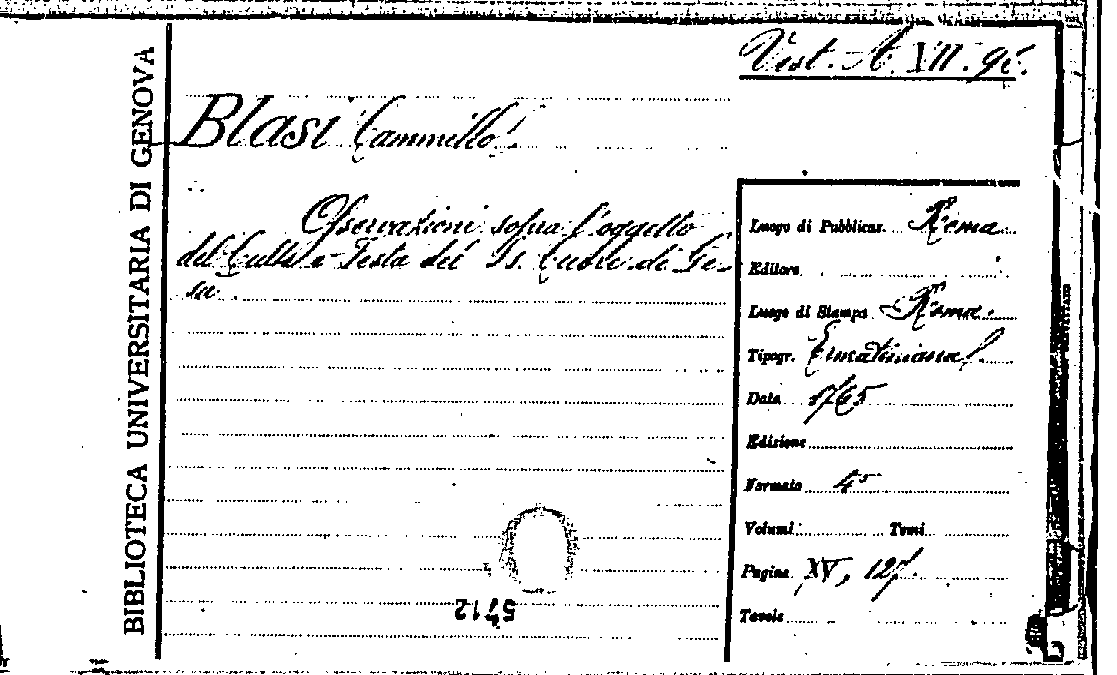 BIBLIOTECA UNIVERSITARIA DI GENOVA
Vest. A. VII. 95.
Blasi Cammillo
Osservazioni sopra l'oggetto
del Culto e Festa del Ss. Cuore di Ge-
su
Luogo di Pubblicaz. Roma
Editore
Luogo di Stampa Roma
Tipogr.
Data 1765
Edizione
Formato 4°
Volumi: Tomi
Pagine XV, 127.
Tavole
5712